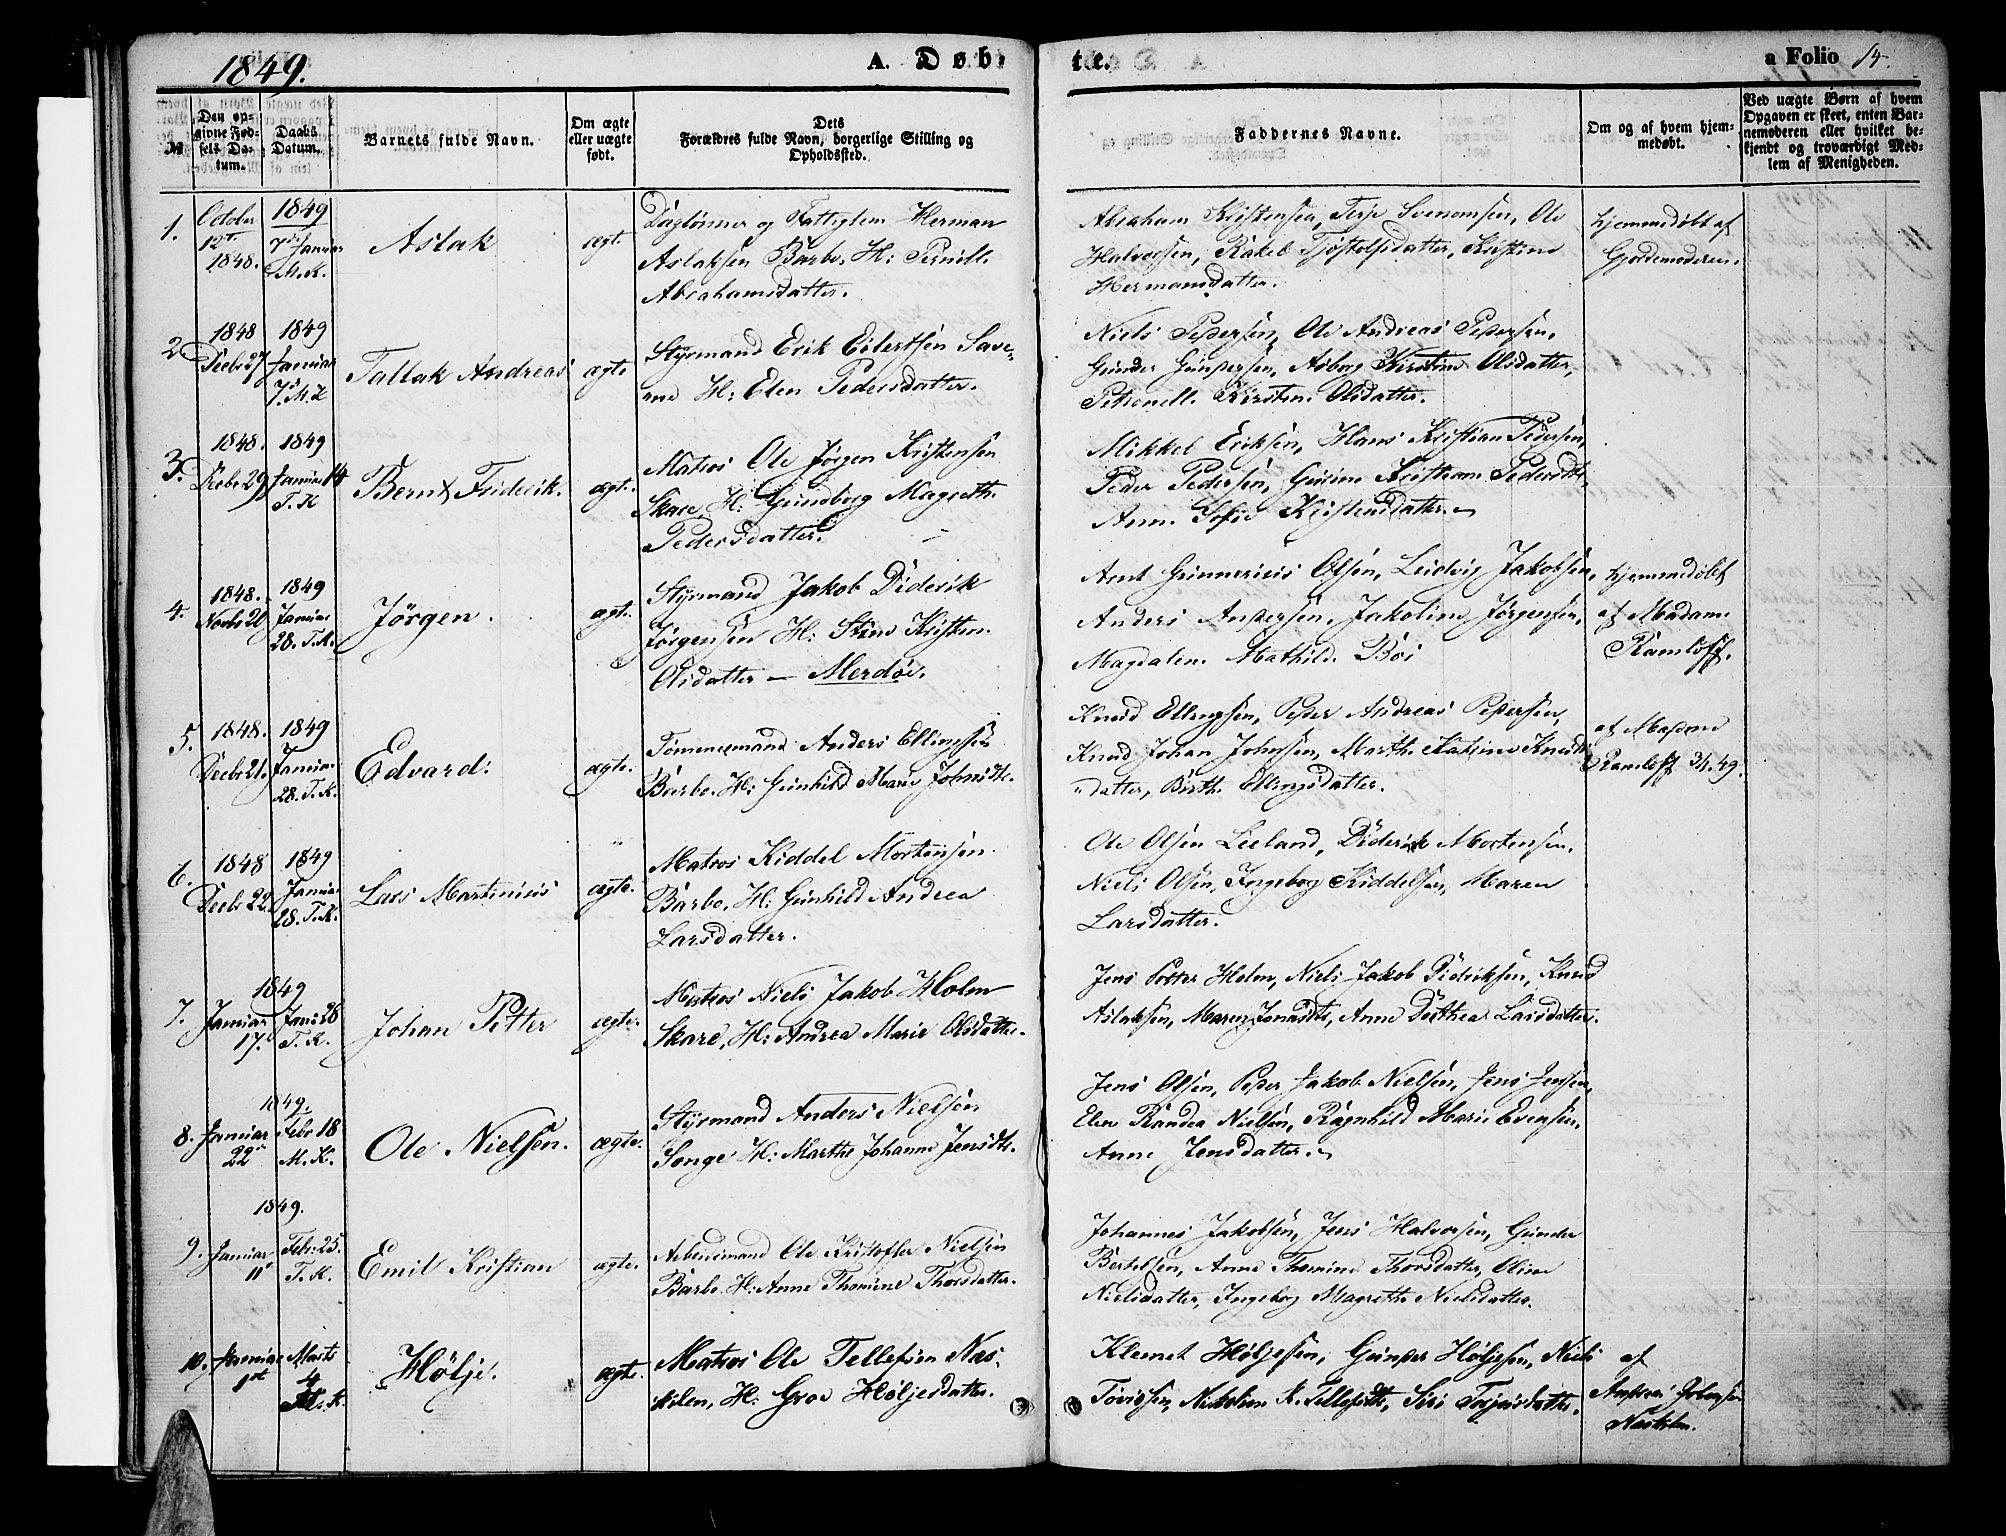 1849.
A. Døb-
te.
a Folio 14.
№
Den op-
givne Fød-
sels Da-
tum.
Daabs
Datum.
Barnets fulde Navn.
Om ægte
eller uægte
født.
Dets
Forældres fulde Navn, borgerlige Stilling og
Opholdssted.
Faddernes Navne.
Om og af hvem hjem-
medøbt.
Ved uægte Børn af hvem
Opgaven er skeet, enten Bar-
nemoderen eller hvilket be-
kjendt og troværdigt Med-
lem af Menigheden.
1.
October
12t
1848.
1849
7de Januar
M. K.
Aslak
ægt.
Daglønner og Fattiglem Herman
Aslaksen Barbo. H: Pernill.
Abrahamsdatter.
Abraham Kristensen, Terje Svenomsen, Ole
Halvorsen, Rakel Tjøstolfsdatter, Kristine
Hermansdatter.
hjemmedøbt af
Gjordemoderen.
2
1848
Decbr 27
1849
Januar
7. M. K
Tallak Andreas
ægte
Styrmand Erik Eilertsen Save-
H: Elen Pedersdatter.
Niels Pedersen, Ole Andreas Pedersen,
Gunder Gundersen, Asborg Kirstine Olsdatter,
Petronell. Kirstine Olsdatter.
3.
1848.
Decbr 29
1849
Januar 14
T. K
Bernt Friderik.
ægte.
Matros Ole Jørgen Kristensen
Skare, H: Gunborg Magreth.
Pedersdatter.
Mikkel Eriksen, Hans Kristian Pedersen,
Peder Pedersen, Kristiane Pedersdtr,
Anne Sofie Kristensdatter.
4.
1848.
Novbr 20
1849
Januar
28. T. K.
Jörgen.
ægte.
Styrmand Jakob Diderik
Jørgensen H: Stine Kristin.
Olsdatter — Merdöe.
Arnt Gunnerius Olsen, Ludvig Jakobsen,
Anders Andersen, Jakobine Jørgensen,
Magdalen. Mathild. Boi
hjemmedøbt
af Madam
Ramløff.
5.
1848.
Decbr 21
1849
Januar
28. T. K.
Edvard.
ægte.
Tømmermand Anders Ellingsen
Barbo. H: Gunhild Marie Johnsdtr.
Knud Ellingsen, Peder Andreas Pedersen,
Knud Johan Johnsen, Marth. Katrine Knuds-
datter, Birth. Ellingsdatter.
af Madame
Ramløff 3/1. 49.
6.
1848
Decbr 22
1849
Januar
28. T. K.
Lars Martinius
ægte.
Matros Kiddel Mortensen
Barbo, H: Gunhild Andrea
Larsdatter.
Ole Olsen Lieland, Diderik Mortensen,
Niels Olsen, Ingeborg Kiddelsen, Maren
Larsdatter.
7.
1849
Januar
17.
Janr 28
T. K.
Johan Petter
ægte.
Matros Niels Jakob Holm
Skare, H: Andrea Marie Olsdatter.
Jens Petter Holm, Niels Jakob Didriksen, Knud
Aslaksen, Maren Jonasdtr, Anne Dorthea Larsdatter.
8.
1849.
Januar
22
Febr 18
M. K.
Ole Nielsen.
ægte.
Styrmand Anders Nielsen
Songe H: Marthe Johanne Jensdtr.
Jens Olsen, Peder Jakob Nielsen, Jens Jensen,
Elen Randea Nielsen, Ragnhild Marie Evensen,
Anne Jensdatter.
9.
1849.
Januar
11
Febr: 25.
T. K.
Emil Kristian
ægte.
Arbeidsmand Ole Kristoffer Nielsen
Barbo. H: Anne Thomine Thorsdatter.
Johannes Jakobsen, Jens Halvorsen, Gunder
Bertelsen, Anne Thomine Thorsdatter, Oline
Nielsdatter, Ingeborg Magrethe Nielsdatter.
10.
Januar
1st
Marts
4
M. K
Höljé.
ægte.
Matros Ole Tellefsen Nas-
kilen, H: Groe Höljesdatter.
Klemet Höljesen, Gunder Höljesen, Niels
Nikoline K. Tellefsdtr, Siri Torjusdatter.
af
Johnsen
Naskilen.